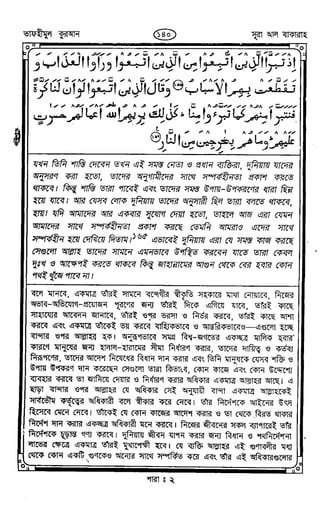 তাফহীমুল কুরআন
১৪০
সূরা আল বাকারাহ
إِذْ تَبَرَّأَ الَّذِينَ اتُّبِعُوا مِنَ الَّذِينَ اتَّبَعُوا وَرَأَوُا الْعَذَابَ وَ
تَقَطَّعَتْ بِهِمُ الْأَسْبَابُ ﴿١٦٦﴾ وَقَالَ الَّذِينَ اتَّبَعُوا لَوْ أَنَّ لَنَا كَرَّةً
فَنَتَبَرَّأَ مِنْهُمْ كَمَا تَبَرَّءُوا مِنَّا كَذَٰلِكَ يُرِيهِمُ اللَّهُ أَعْمَالَهُمْ حَسَرَاتٍ
عَلَيْهِمْ وَمَا هُمْ بِخَارِجِينَ مِنَ النَّارِ ﴿١٦٧﴾
যখন তিনি শাস্তি দেবেন তখন এই সমস্ত নেতা ও প্রধান ব্যক্তিরা, দুনিয়ায় যাদের
অনুসরণ করা হতো, তাদের অনুগামীদের সাথে সম্পর্কহীনতা প্রকাশ করতে
থাকবে। কিন্তু শাস্তি তারা পাবেই এবং তাদের সমস্ত উপায়-উপকরণের ধারা ছিন্ন
হয়ে যাবে। আর যেসব লোক দুনিয়ায় তাদের অনুসারী ছিল তারা বলতে থাকবে,
হায়! যদি আমাদের আর একবার সুযোগ দেয়া হতো, তাহলে আজ এরা যেমন
আমাদের সাথে সম্পর্কহীনতা প্রকাশ করছে তেমনি আমরাও এদের সাথে
সম্পর্কহীন হয়ে দেখিয়ে দিতাম। এভাবেই দুনিয়ায় এরা যে সমস্ত কাজ করছে
সেগুলো আল্লাহ তাদের সামনে এমনভাবে উপস্থিত করবেন যাতে তারা কেবল
দুঃখ ও আক্ষেপই করতে থাকবে কিন্তু জাহান্নামের আগুন থেকে বের হবার কোন
পথই খুঁজে পাবে না।
বলে মানবে, একমাত্র তাঁরই সামনে বন্দেগীর স্বীকৃতি সহকারে মাথা নোয়াবে, নিজের
অভাব-অভিযোগ-প্রয়োজন পূরণের জন্য তাঁরই দিকে এগিয়ে যাবে, তাঁরই কাছে
সাহায্যের আবেদন জানাবে, তাঁরই ওপর ভরসা ও নির্ভর করবে, তাঁরই কাছে আশা
করবে এবং একমাত্র তাঁকেই ভয় করবে বাহ্যিকভাবে ও আন্তরিকভাবেও—এগুলো হচ্ছে
বান্দার ওপর আল্লাহর হক। অনুরূপভাবে সমগ্র বিশ্ব-জগতের একমাত্র মালিক হবার
কারণে মানুষের জন্য হালাল-হারামের সীমা নির্ধারণ করার, তাদের দায়িত্ব ও কর্তব্য
নিরূপণের, তাদের আদেশ নিষেধের বিধান দান করার এবং তিনি মানুষকে যেসব শক্তি ও
উপায় উপকরণ দান করেছেন সেগুলো তারা কিভাবে, কোন কাজে এবং কোন উদ্দেশ্যে
ব্যবহার করবে তা জানিয়ে দেয়ার ও নির্ধারণ করার অধিকার একমাত্র আল্লাহর আছে। এ
ছাড়া বান্দার ওপর আল্লাহর যে অধিকার সেই অনুযায়ী বান্দা একমাত্র আল্লাহকেই
সার্বভৌম কর্তৃত্বের অধিকারী বলে স্বীকার করে নেবে। তাঁর নির্দেশকে আইনের উৎস
হিসেবে মেনে নেবে। তাঁকেই যে কোন কাজের আদেশ করার ও তা থেকে বিরত থাকার
নির্দেশ দান করার একমাত্র অধিকারী মনে করবে। নিজের জীবনের সকল ব্যাপারেই তাঁর
নির্দেশকে চূড়ান্ত গণ্য করবে। দুনিয়ায় জীবন যাপন করার জন্য বিধান ও পথনির্দেশনা
লাভের ক্ষেত্রে একমাত্র তাঁরই মুখাপেক্ষী হবে। যে ব্যক্তি আল্লাহর এই গুণাবলীর মধ্য
থেকে কোন একটি গুণকেও অন্যের সাথে সম্পর্কিত করে এবং তাঁর এই অধিকারগুলোর
পারা : ২